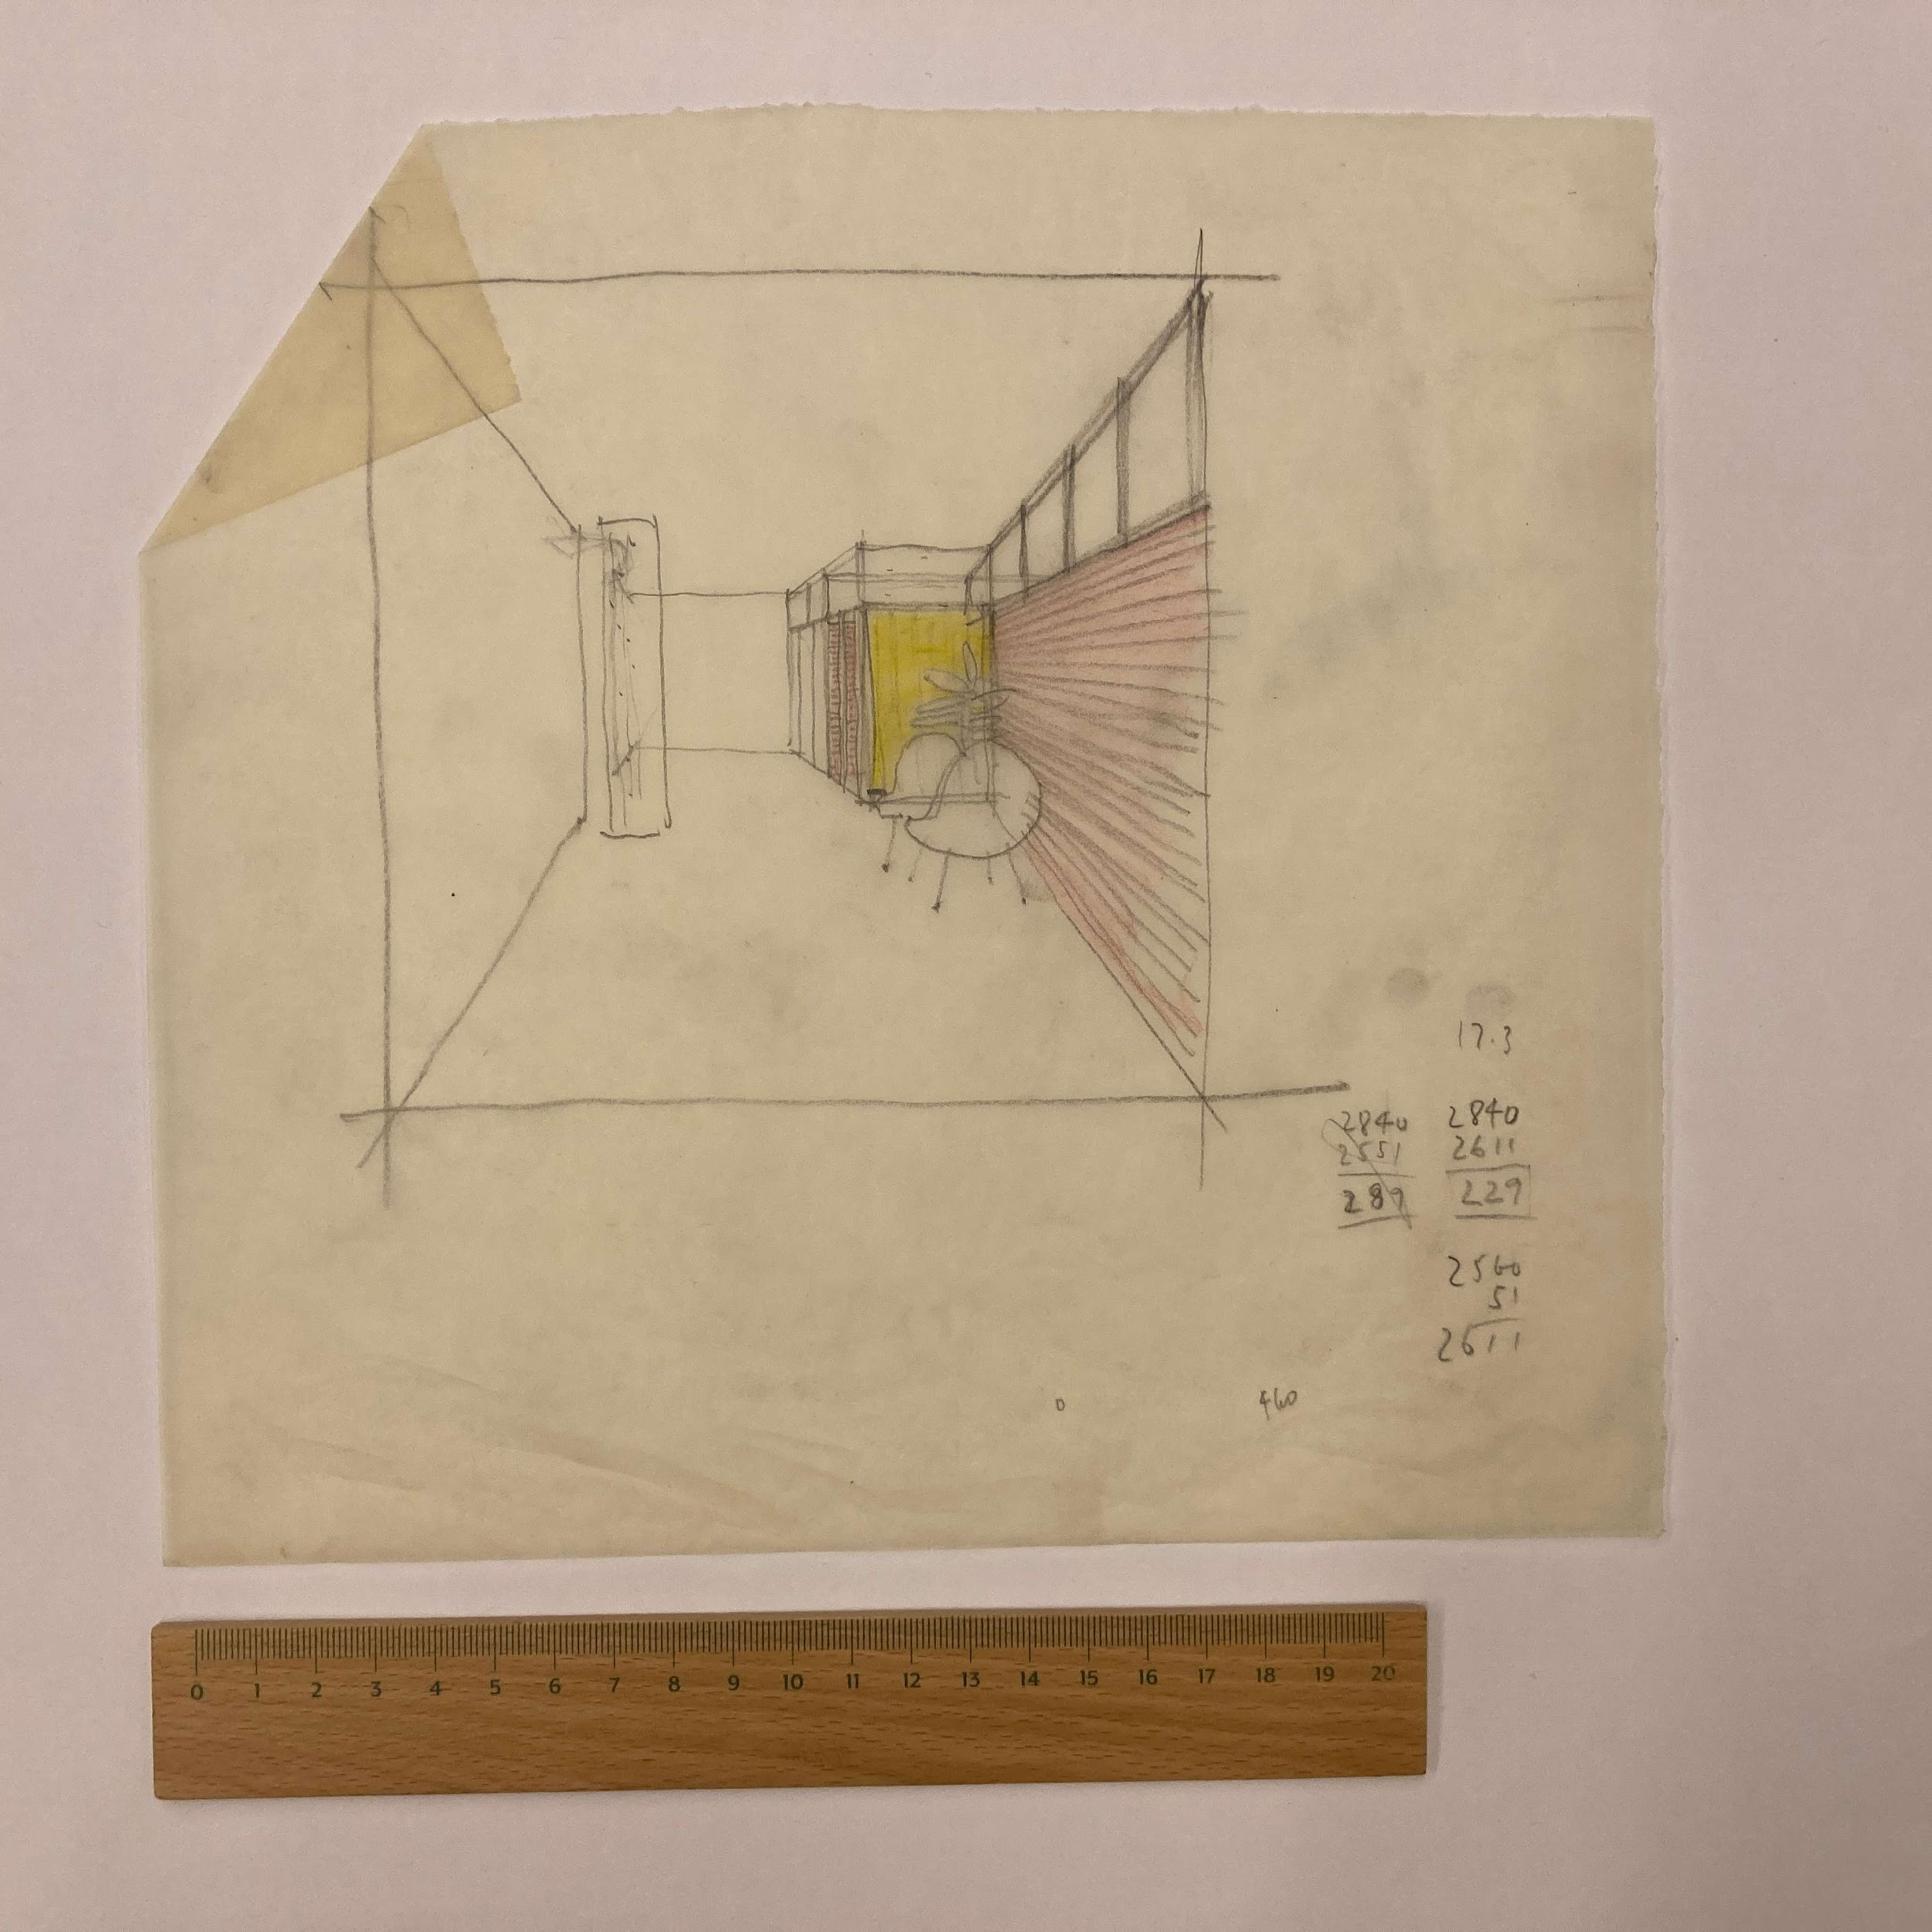 17.3
2840 2840
2551 2611
289 229
2560
51
2611
0 460
0 1 2 3 4 5 6 7 8 9 10 11 12 13 14 15 16 17 18 19 20